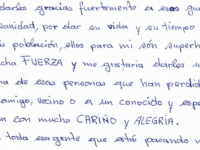 darles gracias fuertemente a esas gu
sanidad, por dar su vida y su tiempo
población, ellos para mi són superh
cha FUERZA y me gustaria darles u
na de esas personas que han perdid
amigo, vecino o a un conocido y espe
n con mucho CARIÑO y ALEGRÍA.
toda esa gente que está pasando